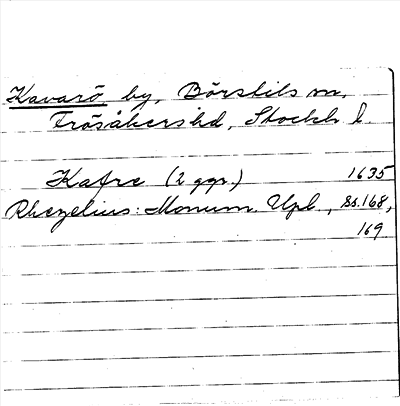 Kavarö by, Börstils sn,
Frösåkers hd, Stockh. l.
Kafre (2 ggr.) 1635
Rhezelius: Monum. Upl., ss. 168,
169